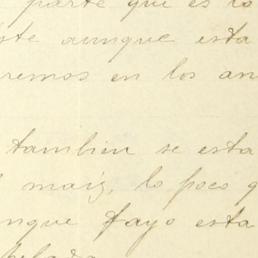 parte que es lo
ste aunque esta
remos en los an
tambien se esta
maiz, lo poco q
nque tayo esta
helada